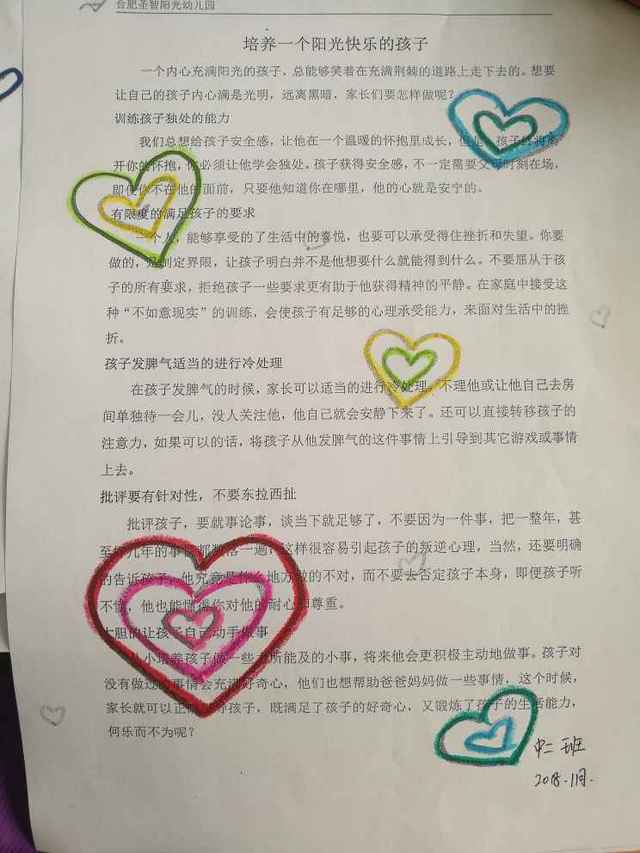 合肥圣智阳光幼儿园
培养一个阳光快乐的孩子
一个内心充满阳光的孩子，总能够笑着在充满荆棘的道路上走下去的。想要
让自己的孩子内心满是光明，远离黑暗，家长们要怎样做呢？
训练孩子独处的能力
我们总想给孩子安全感，让他在一个温暖的怀抱里成长，但是，孩子终将离
开你的怀抱，你必须让他学会独处。孩子获得安全感，不一定需要父母时刻在场，
即使你不在他的面前，只要他知道你在哪里，他的心就是安宁的。
有限度的满足孩子的要求
一个人，能够享受的了生活中的喜悦，也要可以承受得住挫折和失望。你要
做的，是划定界限，让孩子明白并不是他想要什么就能得到什么。不要屈从于孩
子的所有要求，拒绝孩子一些要求更有助于他获得精神的平静。在家庭中接受这
种“不如意现实”的训练，会使孩子有足够的心理承受能力，来面对生活中的挫
折。
孩子发脾气适当的进行冷处理
在孩子发脾气的时候，家长可以适当的进行冷处理。不理他或让他自己去房
间单独待一会儿，没人关注他，他自己就会安静下来了。还可以直接转移孩子的
注意力，如果可以的话，将孩子从他发脾气的这件事情上引导到其它游戏或事情
上去。
批评要有针对性，不要东拉西扯
批评孩子，要就事论事，谈当下就足够了，不要因为一件事，把一整年，甚
至好几年的事情都数落一遍，这样很容易引起孩子的叛逆心理，当然，还要明确
的告诉孩子，他究竟是什么地方做的不对，而不要去否定孩子本身，即便孩子听
不懂，他也能懂得你对他的耐心和尊重。
大胆的让孩子自己动手做事
从小培养孩子做一些力所能及的小事，将来他会更积极主动地做事。孩子对
没有做过的事情会充满好奇心，他们也想帮助爸爸妈妈做一些事情，这个时候，
家长就可以正孩子，既满足了孩子的好奇心，又锻炼了孩子的生活能力，
何乐而不为呢？
中二班
2018.11月.